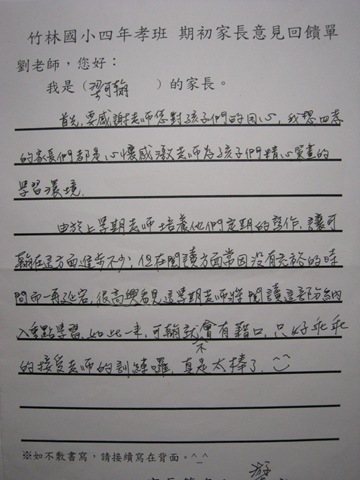 竹林國小四年孝班 期初家長意見回饋單
劉老師，您好：
我是（梁可翰）的家長。
首先要感謝老師您對孩子們的用心，我想四孝
的家長們都是心懷感激老師為孩子們精心策畫的
學習環境.
由於上學期老師培養他們定期的習作，讓可
翰在這方面進步不少；但在閱讀方面常因沒有充裕的時
間而一再延宕，很高興看見這學期老師將閱讀這部份納
入重點學習，如此一來，可翰就不會有藉口，只好乖乖
的接受老師的訓練囉，真是太棒了.
※如不敷書寫，請接續寫在背面。^_^